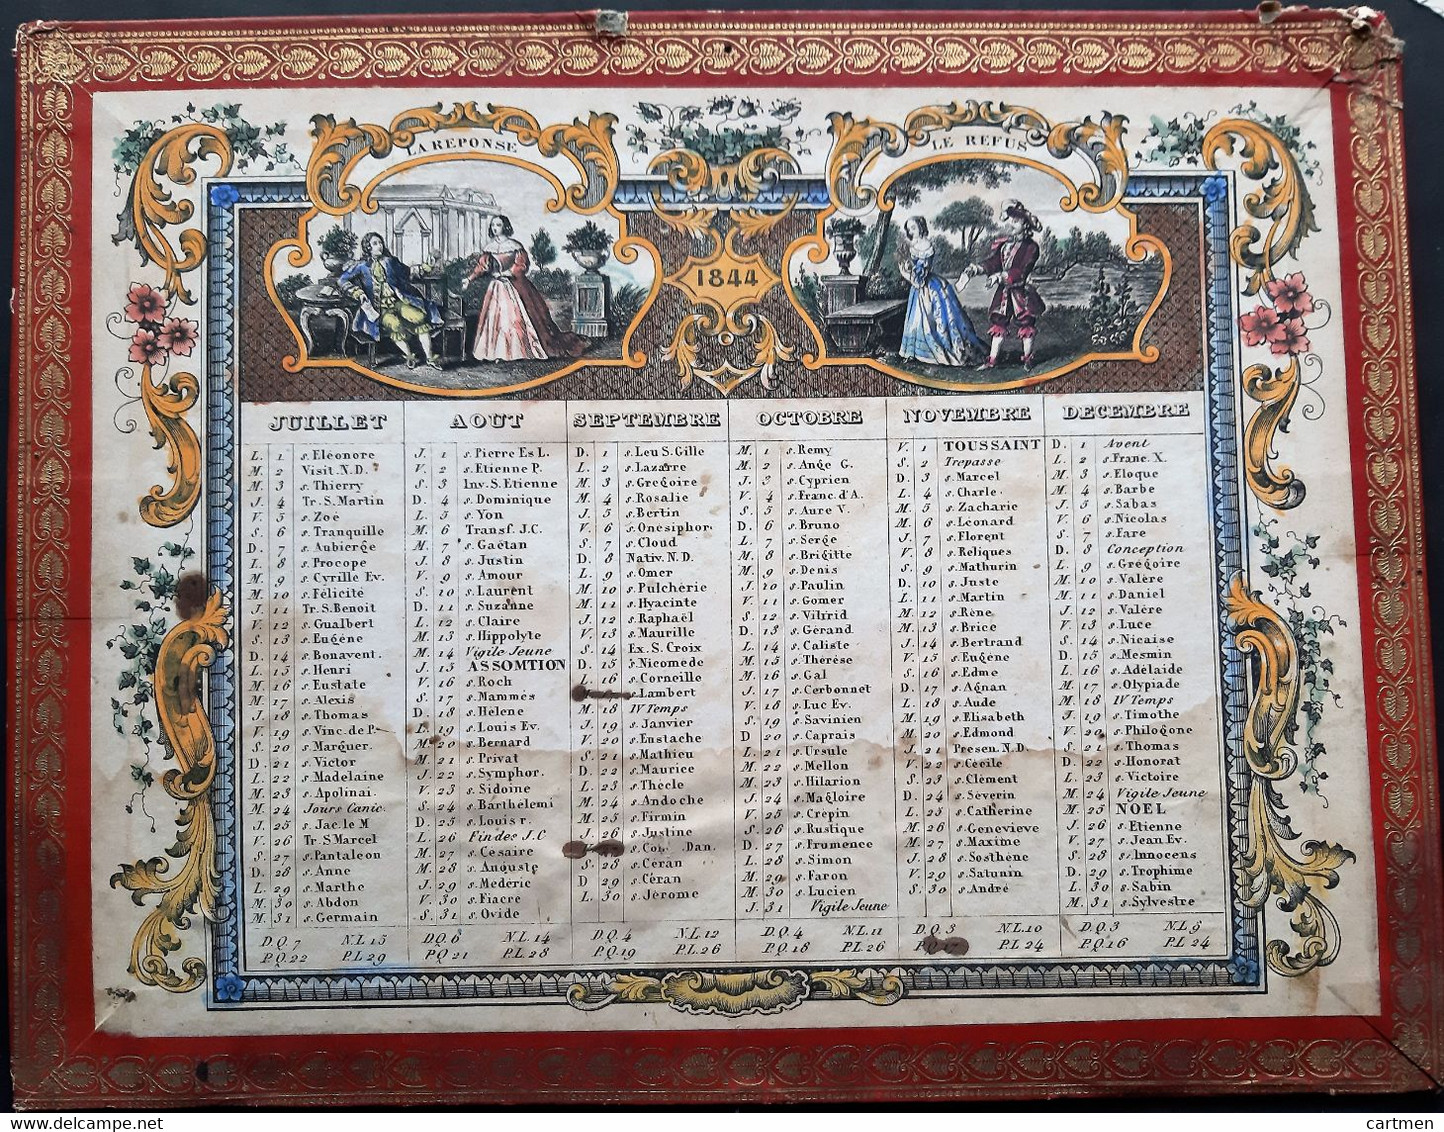 LA REPONSE
LE REFUS
1844
JUILLET
L. 1 s. Eléonore
M. 2 Visit. N.D.
M. 3 s. Thierry
J. 4 Tr. S. Martin
V. 5 s. Zoé
S. 6 s. Tranquille
D. 7 s. Aubierge
L. 8 s. Procope
M. 9 s. Cyrille Ev.
M. 10 s. Félicité
J. 11 Tr. S. Benoit
V. 12 s. Gualbert
S. 13 s. Eugène
D. 14 s. Bonavent.
L. 15 s. Henri
M. 16 s. Eustate
M. 17 s. Alexis
J. 18 s. Thomas
V. 19 s. Vinc. de P.
S. 20 s. Marguer.
D. 21 s. Victor
L. 22 s. Madelaine
M. 23 s. Apolinai.
M. 24 Jours Canic.
J. 25 s. Jac. le M
V. 26 Tr. S. Marcel
S. 27 s. Pantaleon
D. 28 s. Anne
L. 29 s. Marthe
M. 30 s. Abdon
M. 31 s. Germain
D.Q. 7 N.L. 15
P.Q. 22 P.L. 29
AOUT
J. 1 s. Pierre Es L.
V. 2 s. Etienne P.
S. 3 Inv. S. Etienne
D. 4 s. Dominique
L. 5 s. Yon
M. 6 Transf. J.C.
M. 7 s. Gaëtan
J. 8 s. Justin
V. 9 s. Amour
S. 10 s. Laurent
D. 11 s. Suzanne
L. 12 s. Claire
M. 13 s. Hippolyte
M. 14 Vigile Jeune
J. 15 ASSOMTION
V. 16 s. Roch
S. 17 s. Mammès
D. 18 s. Hélène
L. 19 s. Louis Ev.
M. 20 s. Bernard
M. 21 s. Privat
J. 22 s. Symphor.
V. 23 s. Sidoine
S. 24 s. Barthelemi
D. 25 s. Louis r.
L. 26 Fin des J.C
M. 27 s. Césaire
M. 28 s. Auguste
J. 29 s. Médéric
V. 30 s. Fiacre
S. 31 s. Ovide
D.Q. 6 N.L. 14
P.Q. 21 P.L. 28
SEPTEMBRE
D. 1 s. Leu S. Gille
L. 2 s. Lazarre
M. 3 s. Gregoire
M. 4 s. Rosalie
J. 5 s. Bertin
V. 6 s. Onesiphor.
S. 7 s. Cloud
D. 8 Nativ. N.D.
L. 9 s. Omer
M. 10 s. Pulchérie
M. 11 s. Hyacinte
J. 12 s. Raphaël
V. 13 s. Maurille
S. 14 Ex. S. Croix
D. 15 s. Nicomede
L. 16 s. Corneille
s. Lambert
M. 18 IV Temps
J. 19 s. Janvier
V. 20 s. Eustache
S. 21 s. Mathieu
D. 22 s. Maurice
L. 23 s. Thècle
M. 24 s. Andoche
M. 25 s. Firmin
J. 26 s. Justine
s. Dan.
S. 28 s. Céran
D 29 s. Céran
L. 30 s. Jérome
D.Q. 4 N.L. 12
P.Q. 19 P.L. 26
OCTOBRE
M. 1 s. Remy
M. 2 s. Ange G.
J. 3 s. Cyprien
V. 4 s. Franc. d'A.
S. 5 s. Aure V.
D. 6 s. Bruno
L. 7 s. Serge
M. 8 s. Brigitte
M. 9 s. Denis
J. 10 s. Paulin
V. 11 s. Gomer
S. 12 s. Vilfrid
D. 13 s. Gérand
L. 14 s. Caliste
M. 15 s. Thérèse
M. 16 s. Gal
J. 17 s. Cerbonnet
V. 18 s. Luc Ev.
S. 19 s. Savinien
D 20 s. Caprais
L. 21 s. Ursule
M. 22 s. Mellon
M. 23 s. Hilarion
J. 24 s. Magloire
V. 25 s. Crépin
S. 26 s. Rustique
D. 27 s. Frumence
L. 28 s. Simon
M. 29 s. Faron
M. 30 s. Lucien
J. 31 Vigile Jeune
D.Q. 4 N.L. 11
P.Q. 18 P.L. 26
NOVEMBRE
V. 1 TOUSSAINT
S. 2 Trepasse
D. 3 s. Marcel
L. 4 s. Charle.
M. 5 s. Zacharie
M. 6 s. Léonard
J. 7 s. Florent
V. 8 s. Reliques
S. 9 s. Mathurin
D. 10 s. Juste
L. 11 s. Martin
M. 12 s. Réne
M. 13 s. Brice
J. 14 s. Bertrand
V. 15 s. Eugène
S. 16 s. Edme
D. 17 s. Agnan
L. 18 s. Aude
M. 19 s. Elisabeth
M. 20 s. Edmond
J. 21 Presen. N.D.
V. 22 s. Cécile
S. 23 s. Clément
D. 24 s. Séverin
L. 25 s. Catherine
M. 26 s. Geneviève
M. 27 s. Maxime
J. 28 s. Sosthène
V. 29 s. Satunin
S. 30 s. André
D.Q. 3 N.L. 10
P.L. 24
DECEMBRE
D. 1 Avent
L. 2 s. Franc. X.
M. 3 s. Eloque
M. 4 s. Barbe
J. 5 s. Sabas
V. 6 s. Nicolas
S. 7 s. Fare
D. 8 Conception
L. 9 s. Grégoire
M. 10 s. Valère
M. 11 s. Daniel
J. 12 s. Valére
V. 13 s. Luce
S. 14 s. Nicaise
D. 15 s. Mesmin
L. 16 s. Adélaide
M. 17 s. Olypiade
M. 18 IV Temps
J. 19 s. Timothe
V. 20 s. Philogone
S. 21 s. Thomas
D. 22 s. Honorat
L. 23 s. Victoire
M. 24 Vigile Jeune
M. 25 NOEL
J. 26 s. Etienne
V. 27 s. Jean Ev.
S. 28 s. Innocens
D. 29 s. Trophime
L. 30 s. Sabin
M. 31 s. Sylvestre
D.Q. 3 N.L. 9
P.Q. 16 P.L. 24
delcampe.net
cartmen